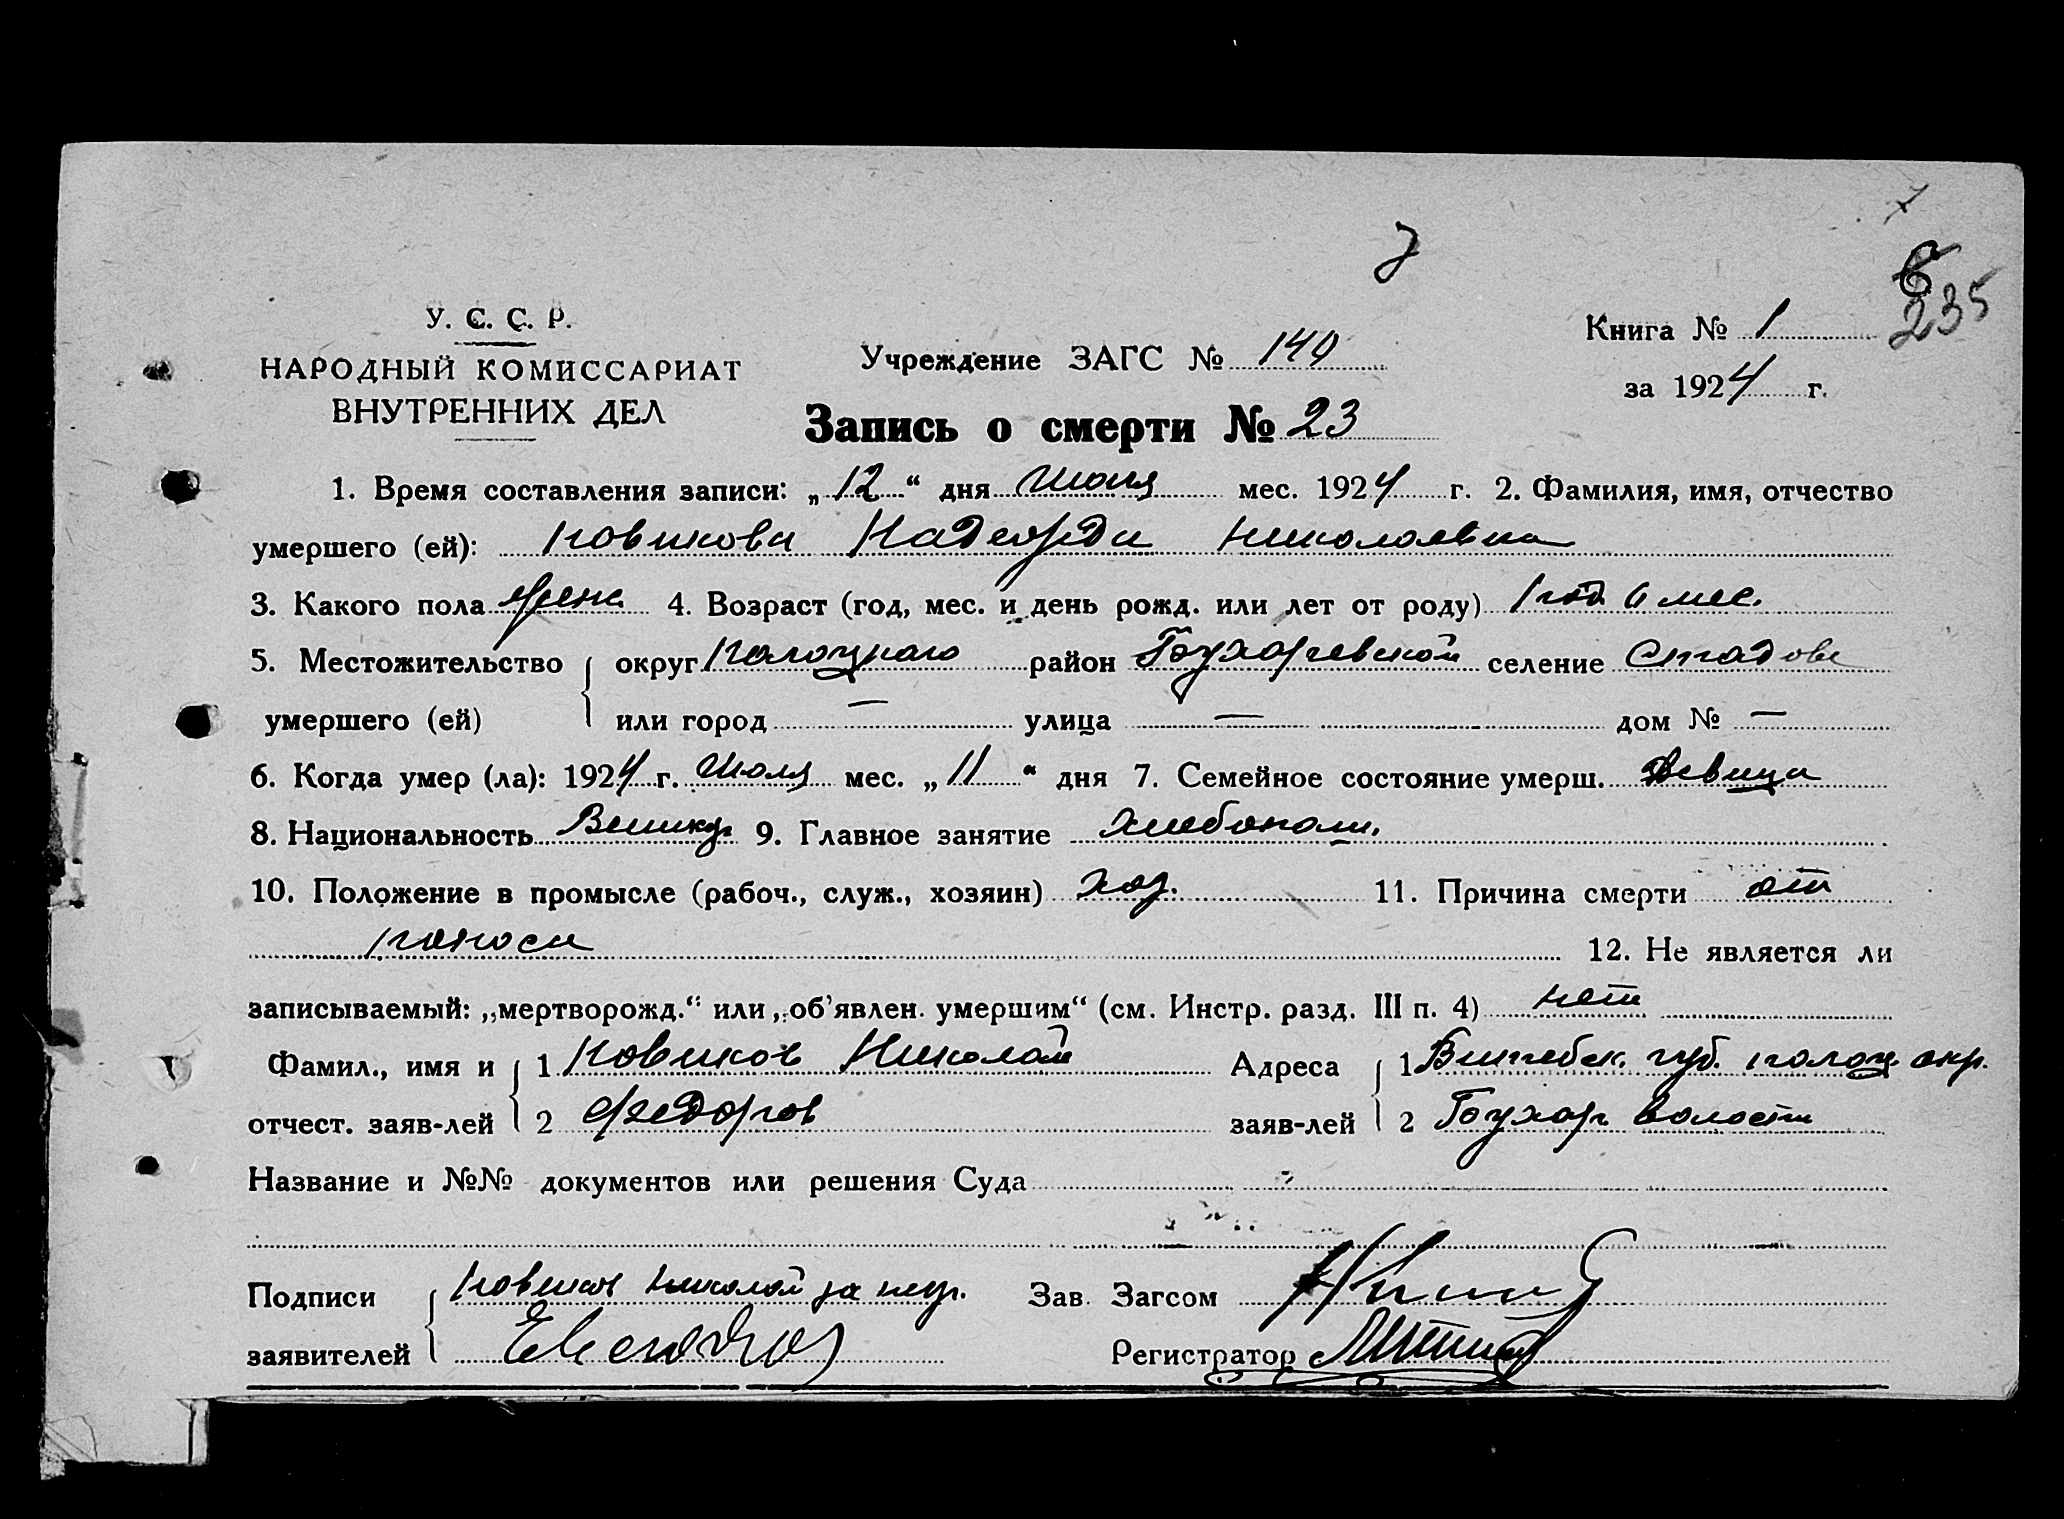 7
235
У. С. С. Р.
НАРОДНЫЙ КОМИССАРИАТ
ВНУТРЕННИХ ДЕЛ
Учреждение ЗАГС № 140
Книга № 1
за 1924 г.
Запись о смерти № 23
1. Время составления записи: „12“ дня Июля мес. 1924 г. 2. Фамилия, имя, отчество
умершего (ей): Новикова Надежда Николаевна
3. Какого пола жен. 4. Возраст (год, мес. и день рожд. или лет от роду) 1 год 6 мес.
5. Местожительство округ Полоцкаго район селение
умершего (ей) или город — улица — дом № —
6. Когда умер (ла): 1924 г. Июля мес. „11“ дня 7. Семейное состояние умерш. Девица
8. Национальность 9. Главное занятие хлебопаш.
10. Положение в промысле (рабоч., служ., хозяин) хоз. 11. Причина смерти от
поноса 12. Не является ли
записываемый: „мертворожд.“ или „об'явлен. умершим“ (см. Инстр. разд. III п. 4) нет
Фамил., имя и 1 Новиков Николай Адреса 1 Витебск. губ. полоц. окр.
отчест. заяв-лей 2 Федоров заяв-лей 2 волости
Название и №№ документов или решения Суда
Подписи Новиков Николай за негр. Зав. Загсом
заявителей Регистратор